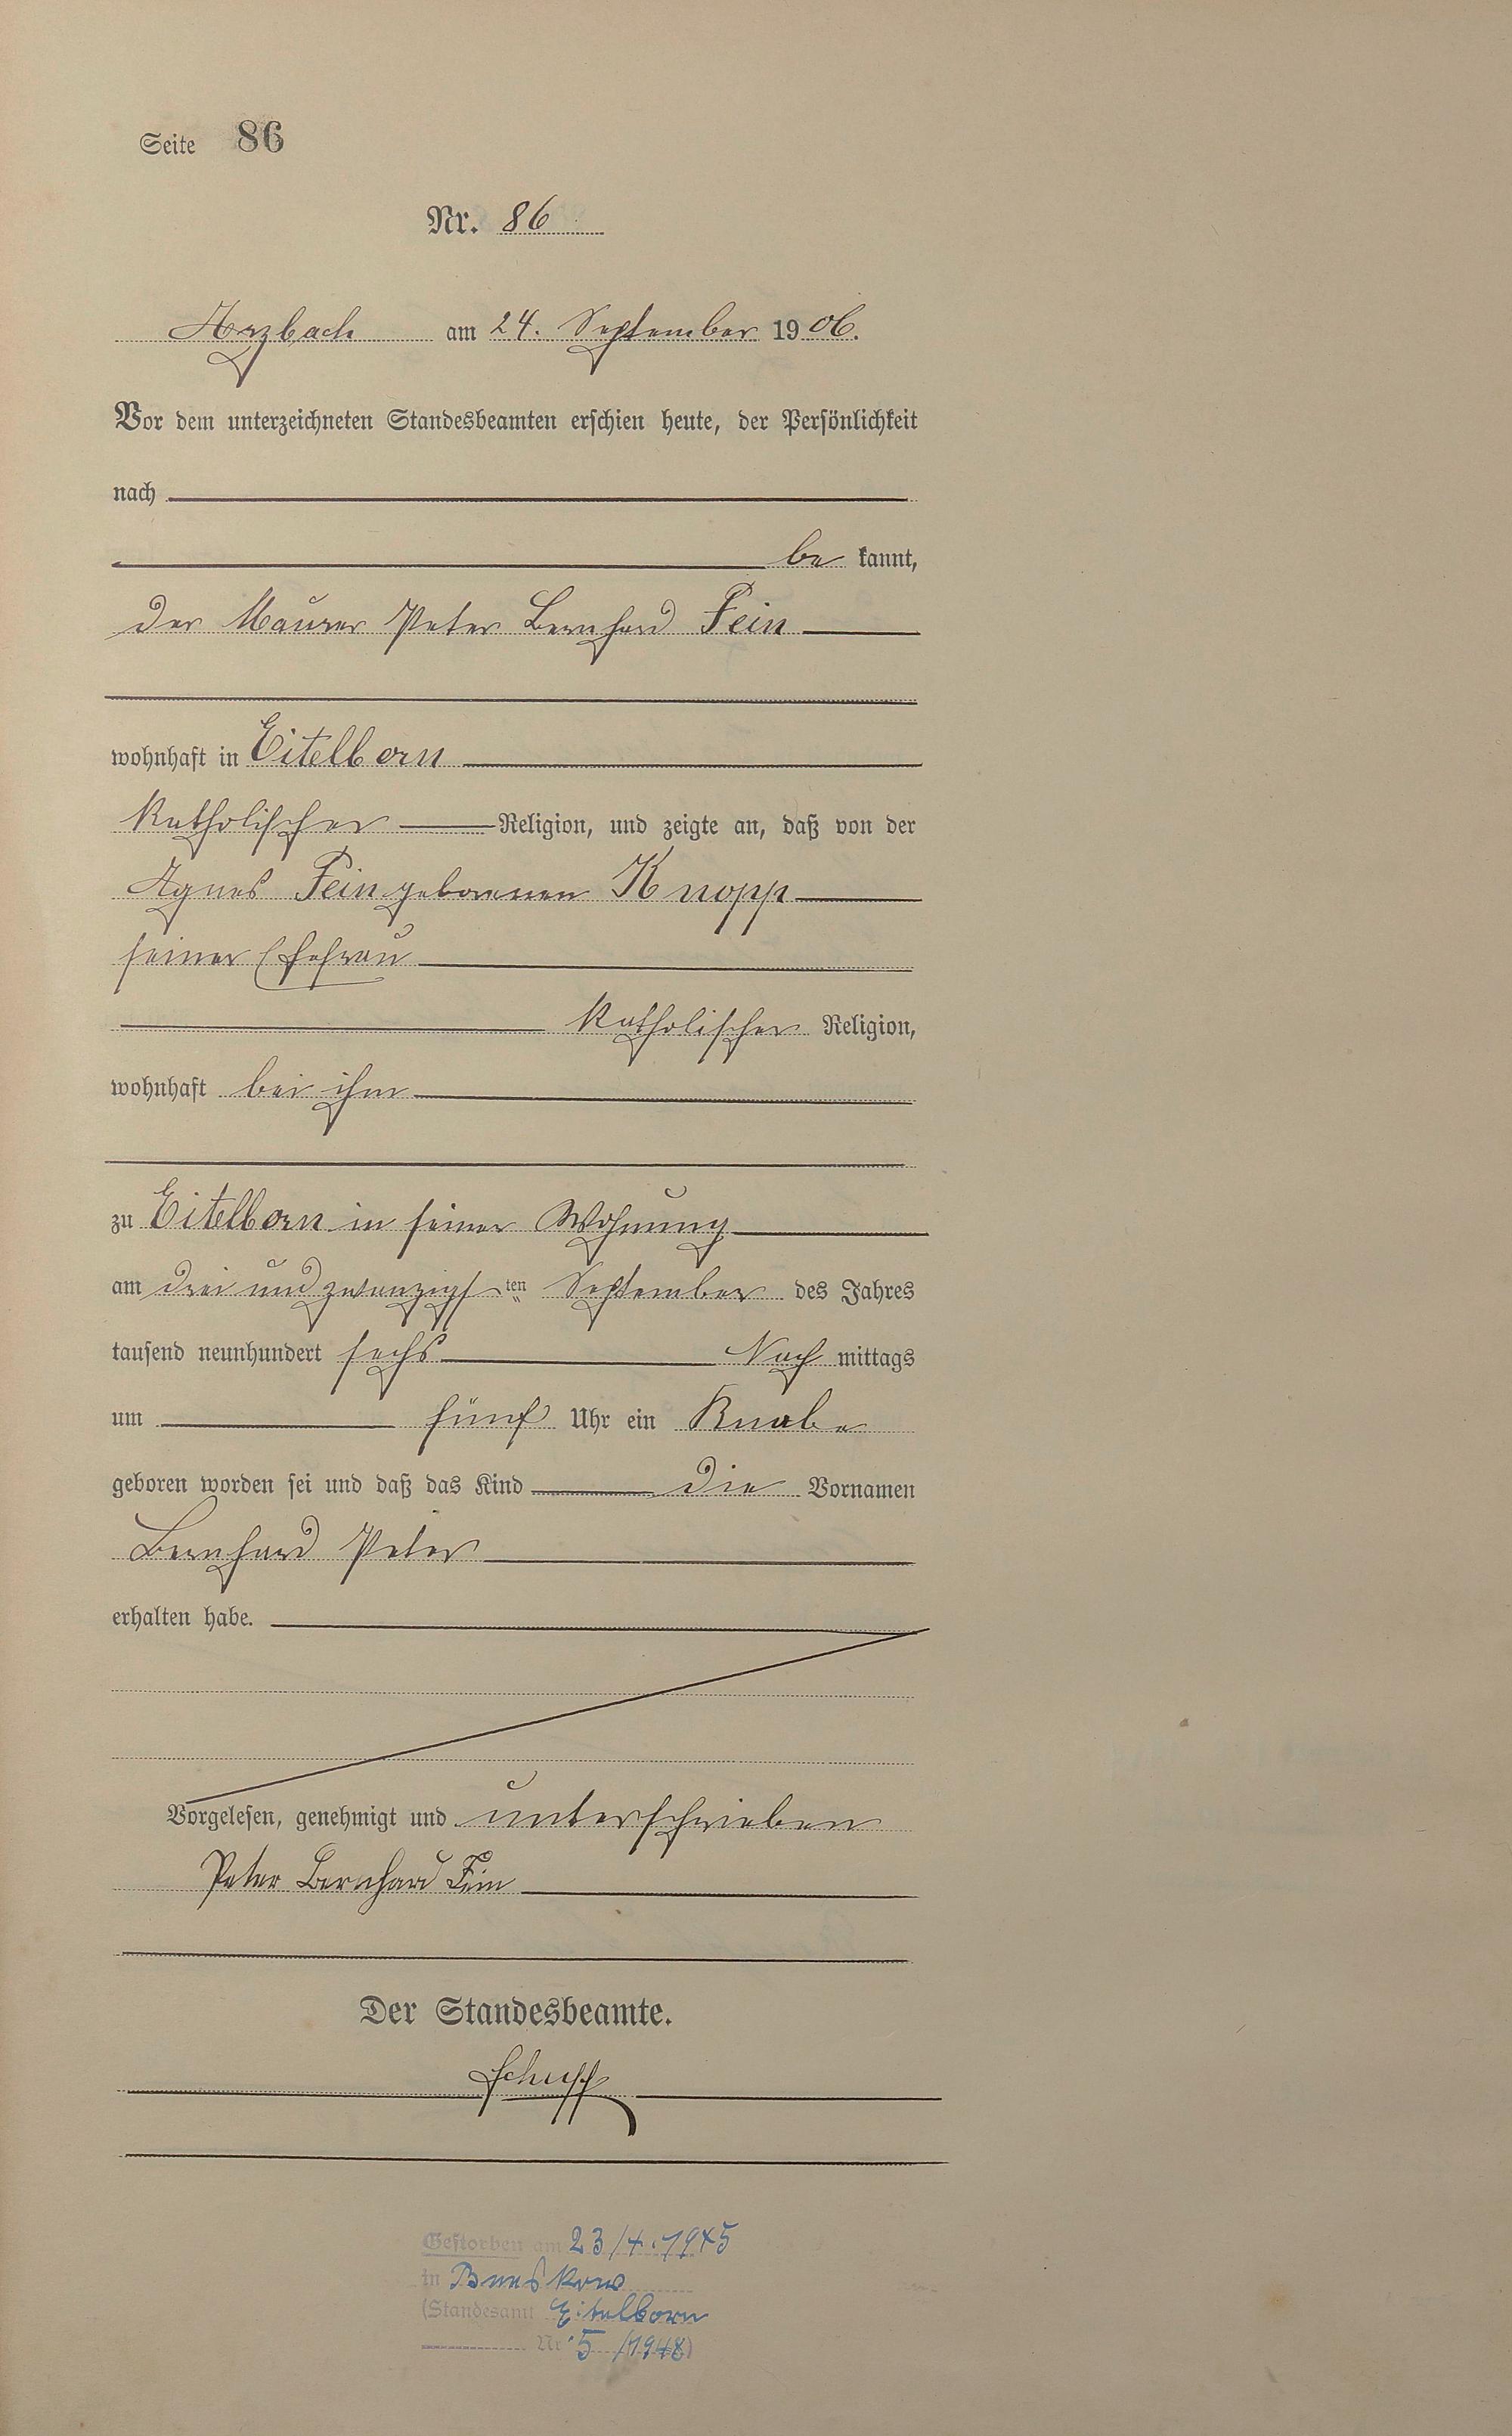 Seite 86
Nr. 86
Arzbach am 24. September 1906.
Vor dem unterzeichneten Standesbeamten erschien heute, der Persönlichkeit
nach
be kannt,
der Maurer Peter Bernhard Fein
wohnhaft in Eitelborn
katholischer Religion, und zeigte an, daß von der
Agnes Fein geborenen Knopp
seiner Ehefrau
katholischer Religion,
wohnhaft bei ihm
zu Eitelborn in seiner Wohnung
am drei und zwanzigsten September des Jahres
tausend neunhundert sechs Nach mittags
um fünf Uhr ein Knabe
geboren worden sei und daß das Kind die Vornamen
Bernhard Peter
erhalten habe.
Vorgelesen, genehmigt und unterschrieben
Peter Bernhard Fein
Der Standesbeamte.
Schupp
Gestorben am 23/4.1945
in
(Standesamt Eitelborn
Nr. 5/1948)